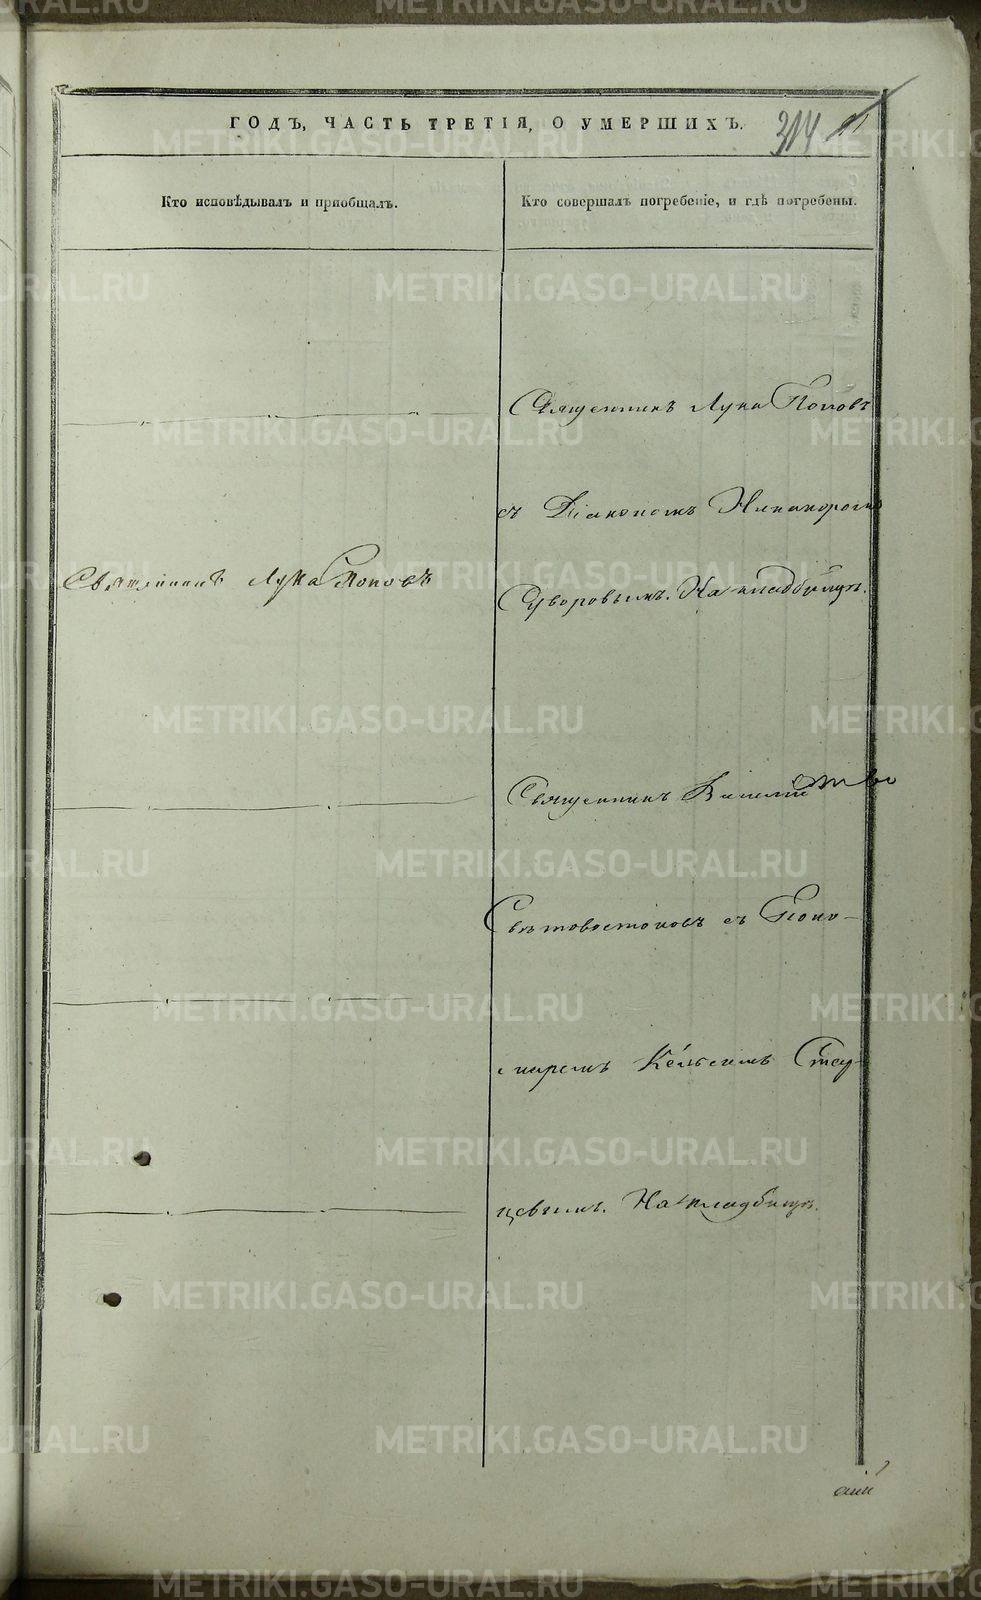 ГОДЪ, ЧАСТЬ ТРЕТІЯ, О УМЕРШИХЪ.
314
Кто исповѣдывалъ и пріобщалъ.
Кто совершалъ погребеніе, и гдѣ погребены.
Священникъ Лука Поповъ
съ Діакономъ Никаноромъ
Священникъ Лука Поповъ
Суворовымъ. На кладбищѣ.
Священникъ Василій
Свѣтовостоковъ съ Поно-
маремъ
цевымъ. На кладбищѣ.
METRIKI.GASO-URAL.RU